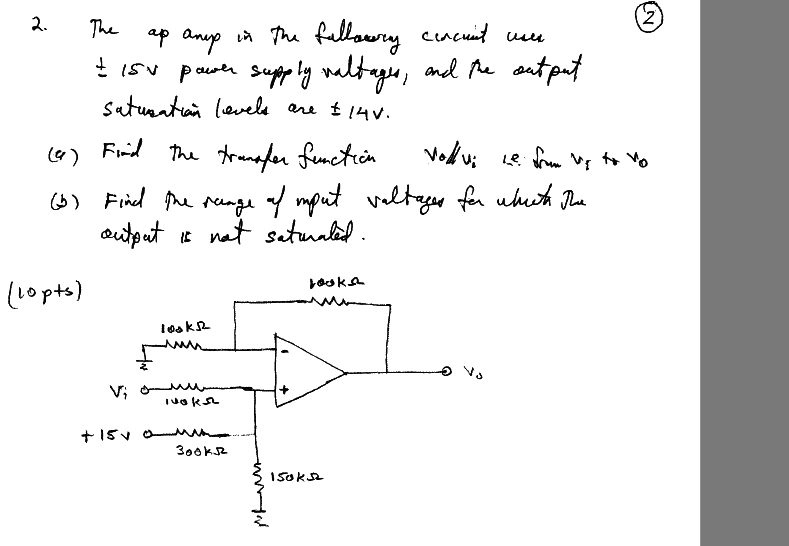 2
2. The op amp in the following circuit uses
± 15V power supply voltages, and the output
saturation levels are ± 14V.
(a) Find the transfer function Vo/Vi i.e. from Vi to Vo
(b) Find the range of input voltages for which the
output is not saturated.
(10 pts)
100KΩ
100KΩ
-
Vi
100KΩ
+
Vo
+15V
300KΩ
150KΩ